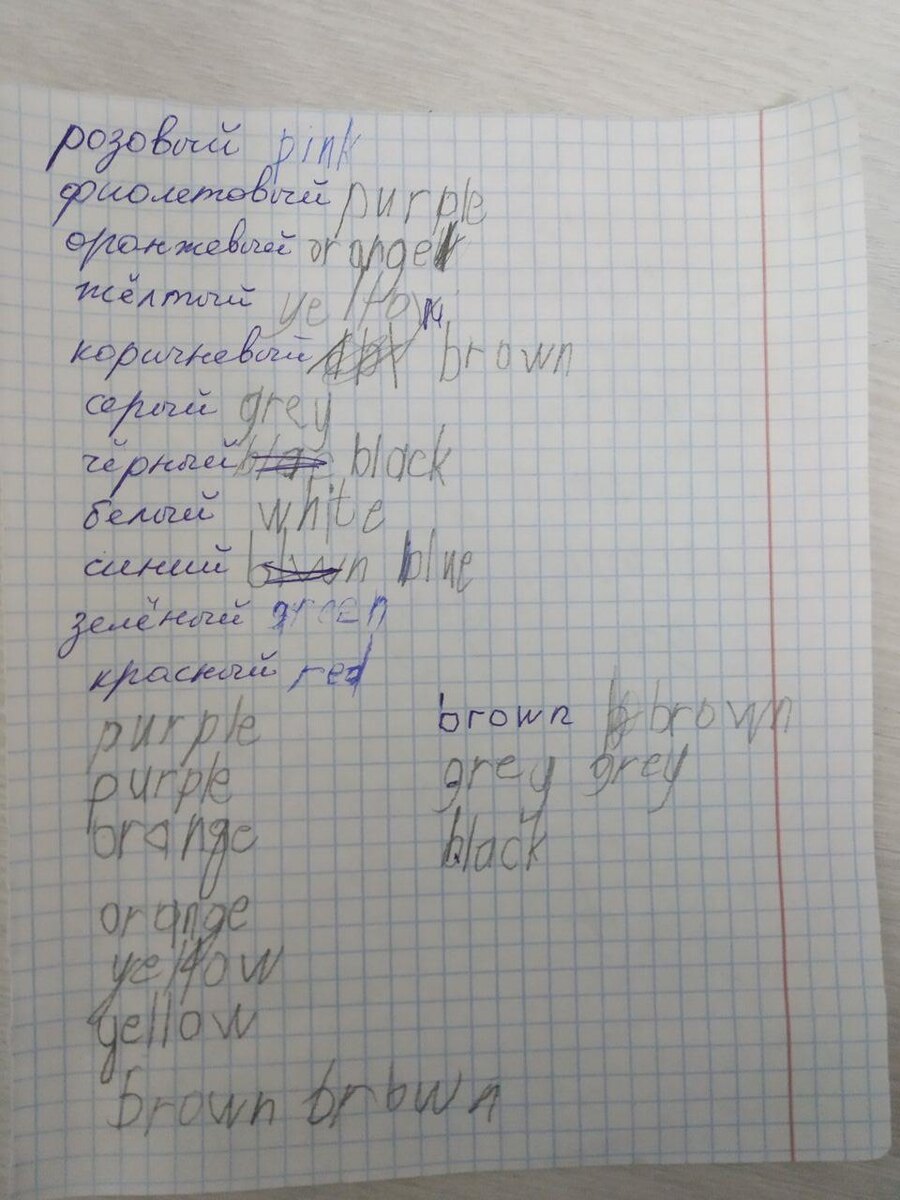 розовый pink
фиолетовый purple
оранжевый orange
жёлтый yellow
коричневый brown
серый grey
чёрный black
белый white
синий blue
зелёный green
красный red
purple
purple
orange
orange
yellow
yellow
brown brown
brown brown
grey grey
black